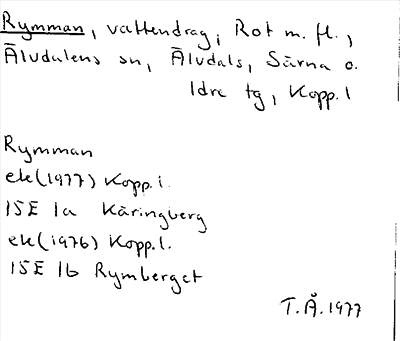 Rymman, vattendrag, Rot m. fl.,
Älvdalens sn, Älvdals, Särna o.
Idre tg, Kopp. l
Rymman
ek(1977) Kopp. l.
15E 1a Käringberg
ek(1976) Kopp. l.
15E 1b Rymberget
T.Å. 1977